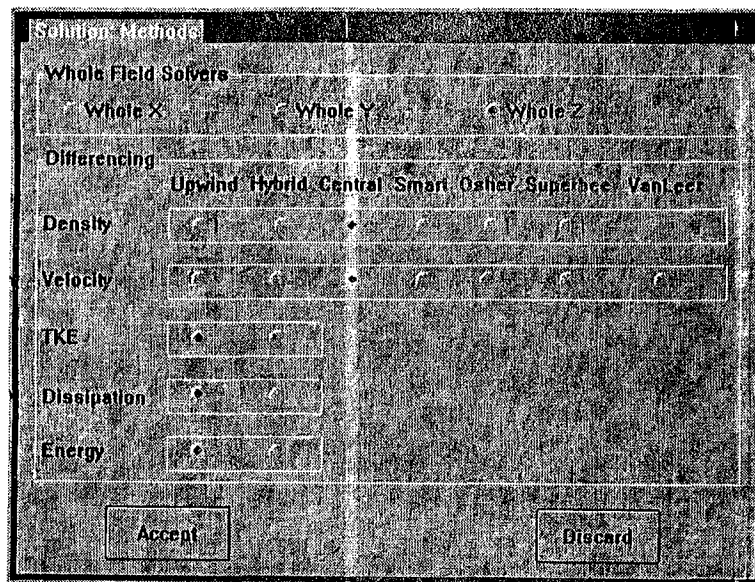 Solution Methods
Whole Field Solvers
Whole X Whole Y Whole Z
Differencing
Upwind Hybrid Central Smart Osher Superbee VanLeer
Density
Velocity
TKE
Dissipation
Energy
Accept Discard